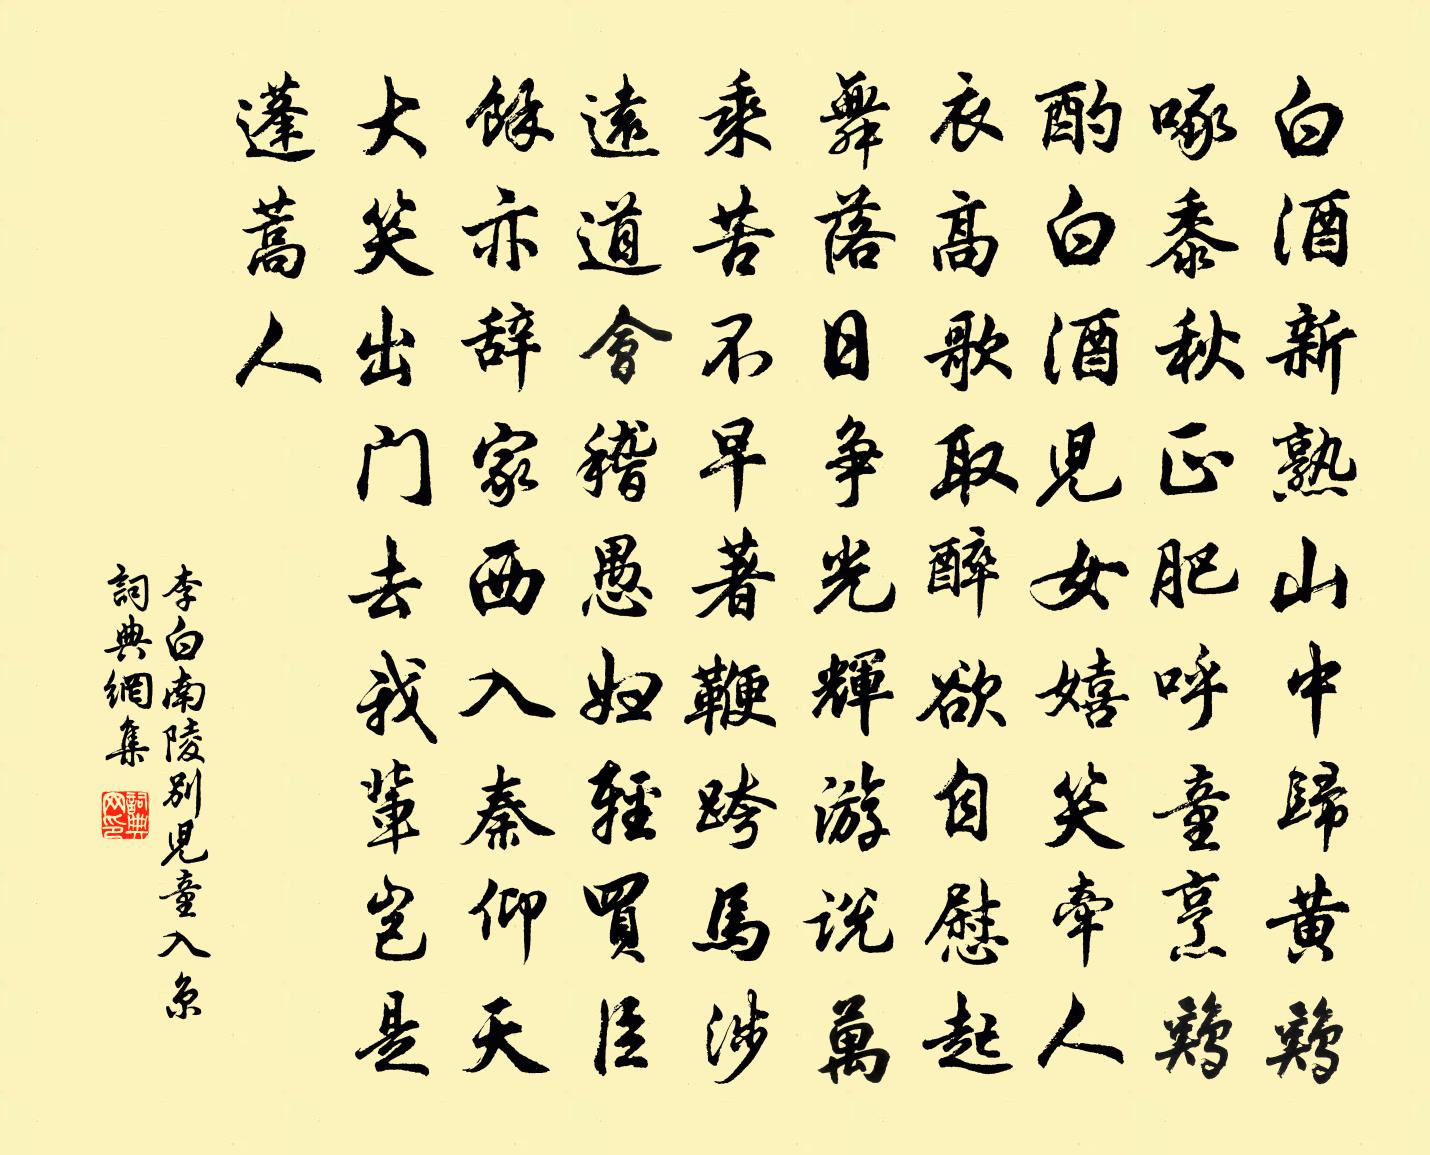 白酒新熟山中歸黃鷄
啄黍秋正肥呼童烹鷄
酌白酒兒女嬉笑牽人
衣高歌取醉欲自慰起
舞落日爭光輝游説萬
乘苦不早著鞭跨馬涉
遠道會稽愚婦輕買臣
餘亦辞家西入秦仰天
大笑出門去我輩豈是
蓬蒿人
李白南陵別兒童入京
詞典網集
詞典
网印